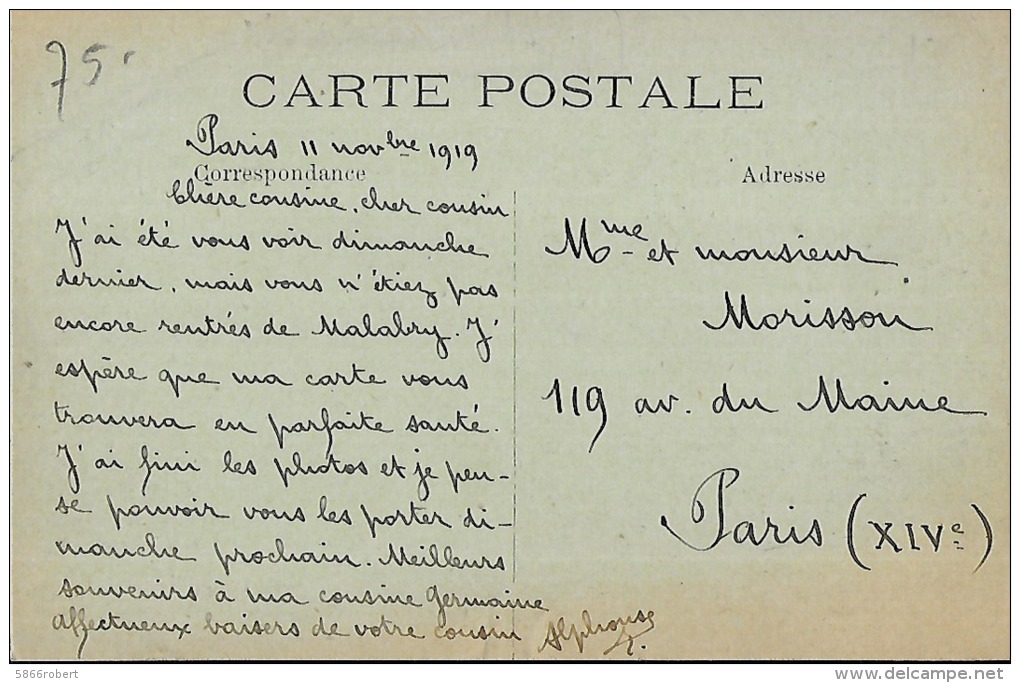 75.
CARTE POSTALE
Paris 11 novbre 1919
Correspondance
Chère cousine, cher cousin
J'ai été vous voir dimanche
dernier, mais vous n'étiez pas
encore rentrés de Malabry. J'
espère que ma carte vous
trouvera en parfaite santé.
J'ai fini les photos et je pen-
se pouvoir vous les porter di-
manche prochain. Meilleurs
souvenirs à ma cousine Germaine
affectueux baisers de votre cousin
Alphonse
Adresse
Mme et monsieur
Morisson
119 av. du Maine
Paris (XIVe)
5866robert
www.delcampe.net